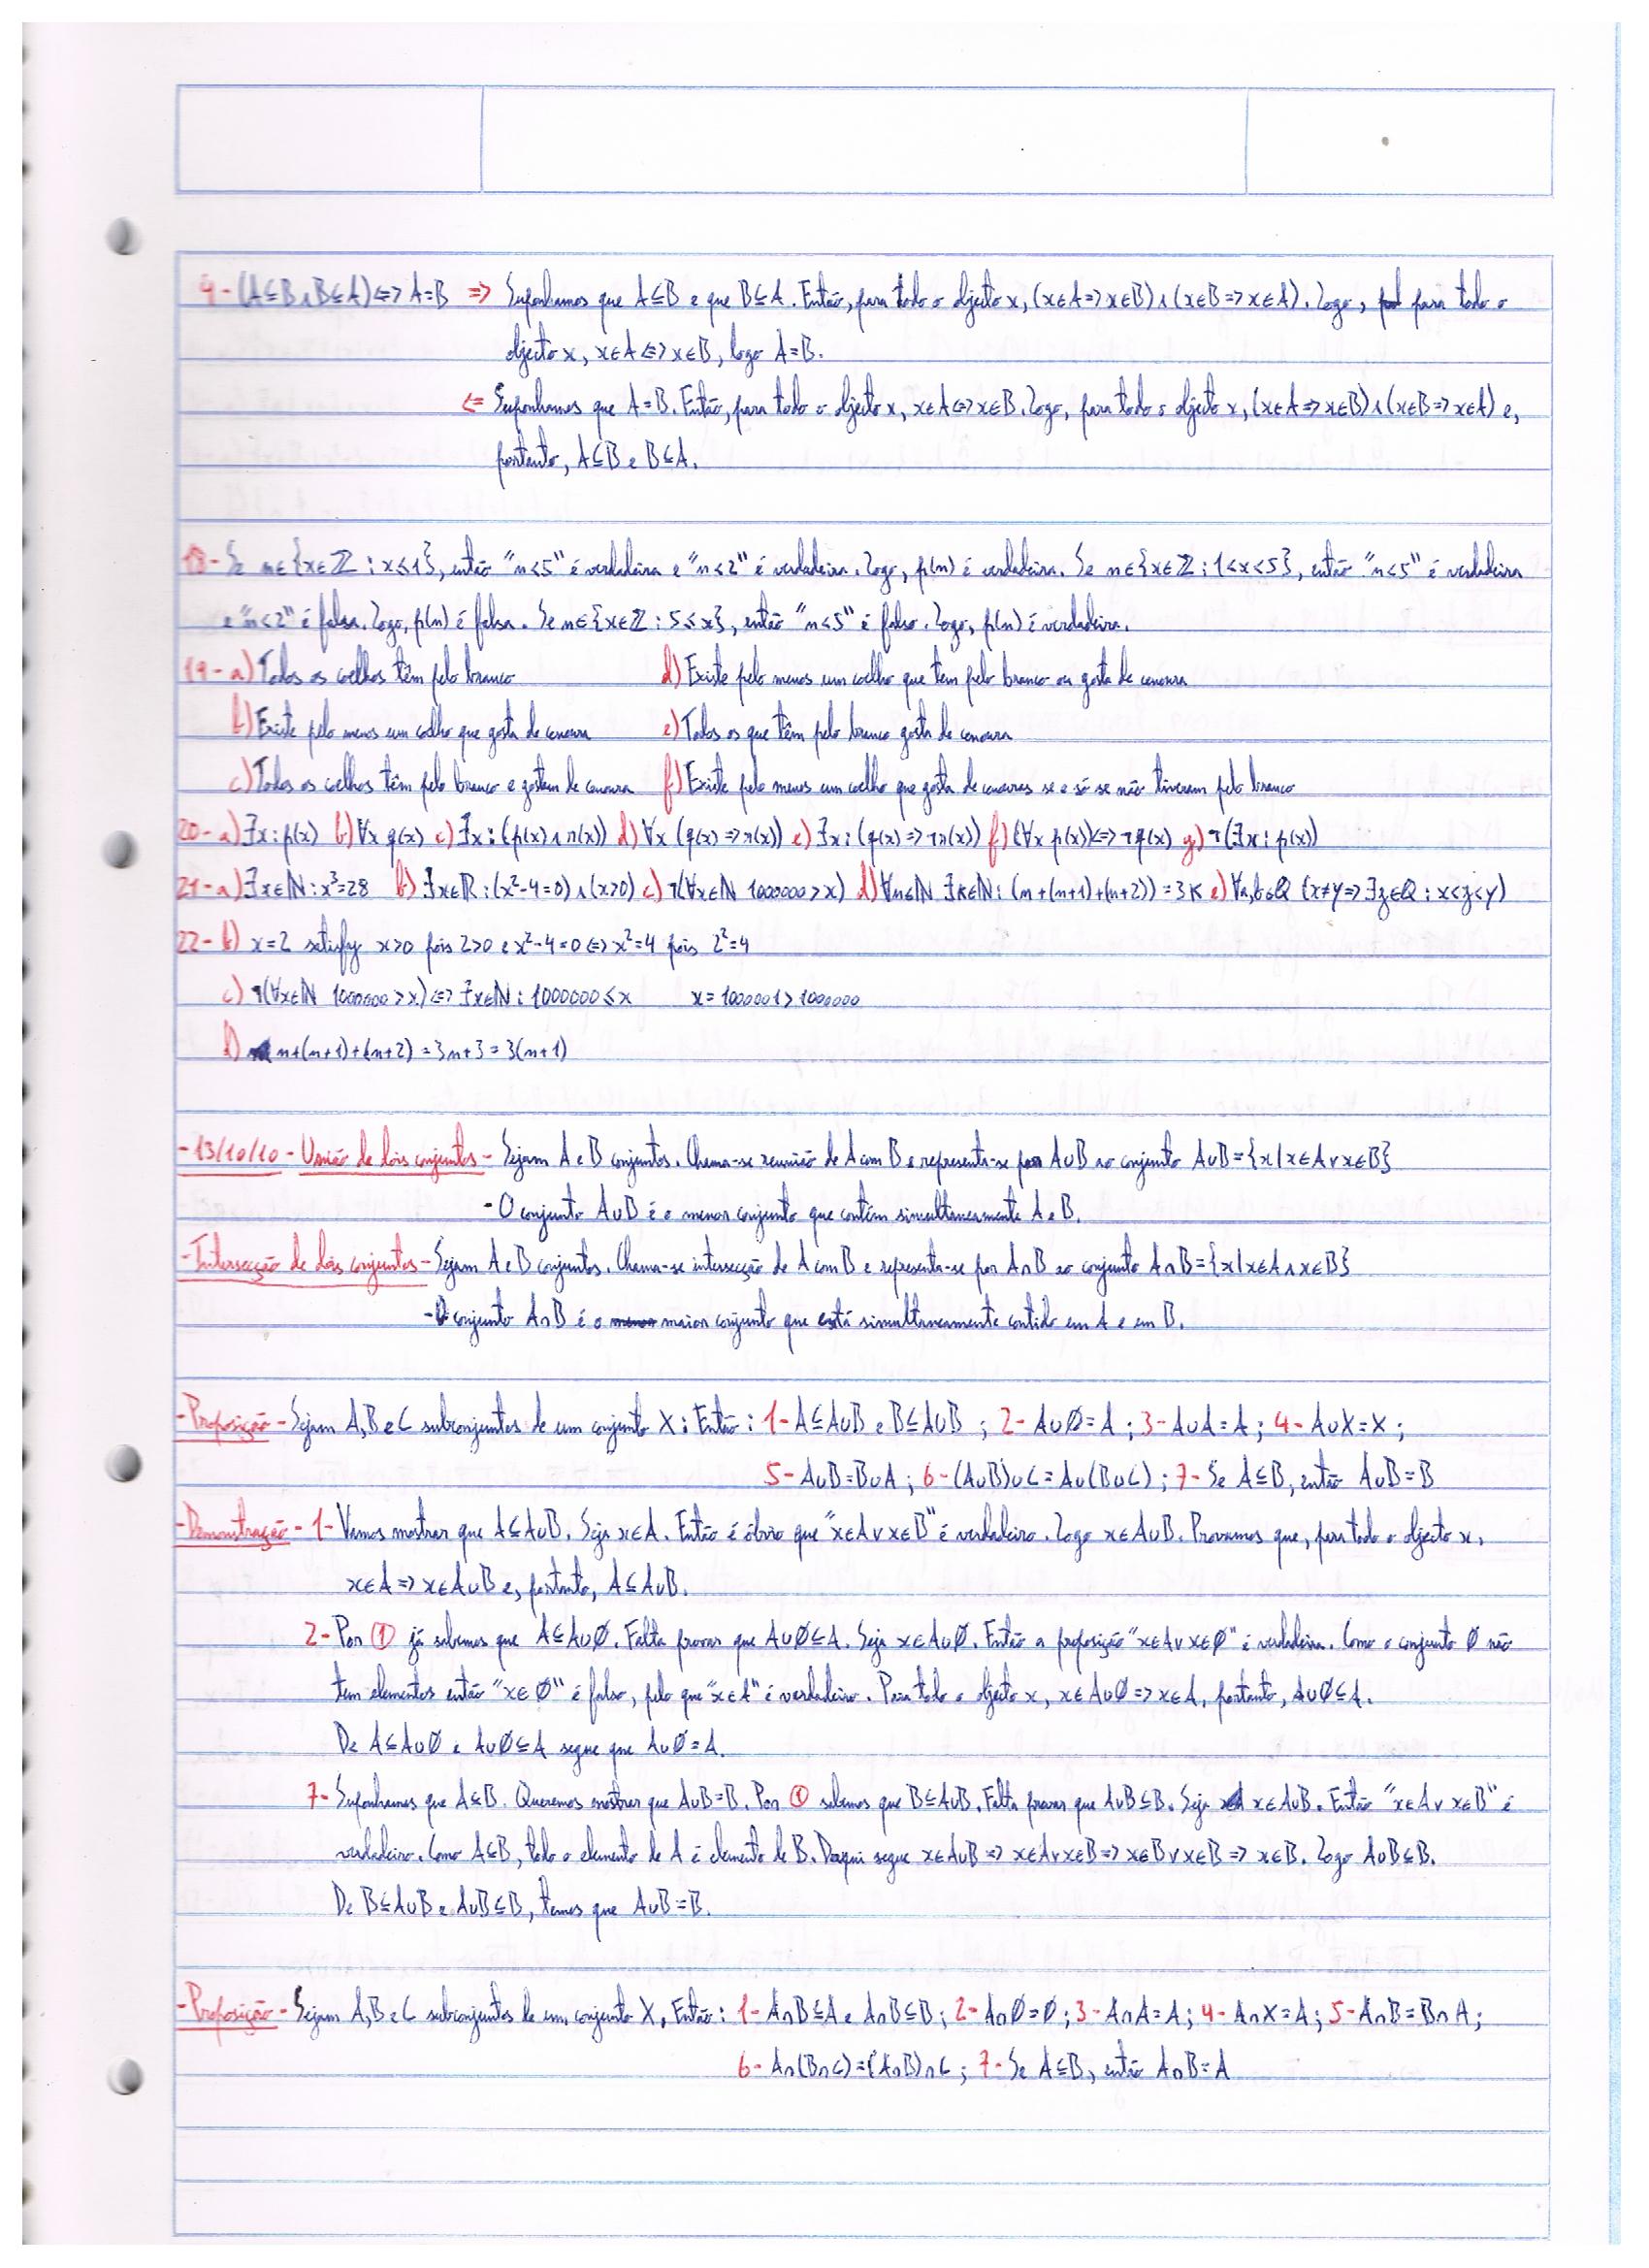 4-(A⊆B∧B⊆A)⇔A=B ⇒ Suponhamos que A⊆B e que B⊆A. Então, para todo o objecto x, (x∈A⇒x∈B)∧(x∈B⇒x∈A). Logo, para todo o
objecto x, x∈A⇔x∈B, logo A=B.
⇐ Suponhamos que A=B. Então, para todo o objecto x, x∈A⇔x∈B. Logo, para todo o objecto x, (x∈A⇒x∈B)∧(x∈B⇒x∈A) e,
portanto, A⊆B e B⊆A.
18-Se n∈{x∈ℤ:x≤1}, então "n<5" é verdadeira e "n<2" é verdadeira. Logo, p(n) é verdadeira. Se n∈{x∈ℤ:1<x<5}, então "n<5" é verdadeira
e "n<2" é falsa. Logo, p(n) é falsa. Se n∈{x∈ℤ:5≤x}, então "n<5" é falso. Logo, p(n) é verdadeira.
19-a) Todos os coelhos têm pelo branco d) Existe pelo menos um coelho que tem pelo branco ou gosta de cenoura
b) Existe pelo menos um coelho que gosta de cenoura e) Todos os que têm pelo branco gosta de cenoura
c) Todos os coelhos têm pelo branco e gostam de cenoura f) Existe pelo menos um coelho que gosta de cenouras se e só se não tiverem pelo branco
20-a) ∃x:p(x) b) ∀x q(x) c) ∃x:(p(x)∧r(x)) d) ∀x (q(x)⇒r(x)) e) ∃x:(q(x)⇒¬r(x)) f) (∀x p(x))⇔¬q(x) g) ¬(∃x:p(x))
21-a) ∃x∈ℕ:x³=28 b) ∃x∈ℝ:(x²-4=0)∧(x>0) c) ¬(∀x∈ℕ 1000000>x) d) ∀n∈ℕ ∃k∈ℕ:(n+(n+1)+(n+2))=3K e) ∀a,b∈ℚ (x≠y⇒∃z∈ℚ:x<z<y)
22-b) x=2 satisfy x>0 pois 2>0 e x²-4=0⇔x²=4 pois 2²=4
c) ¬(∀x∈ℕ 1000000>x)⇔∃x∈ℕ:1000000≤x x=1000001>1000000
d) n+(n+1)+(n+2)=3n+3=3(n+1)
-13/10/10-União de dois conjuntos-Sejam A e B conjuntos. Chama-se reunião de A com B e representa-se por A∪B ao conjunto A∪B={x|x∈A∨x∈B}
-O conjunto A∪B é o menor conjunto que contém simultaneamente A e B.
-Intersecção de dois conjuntos-Sejam A e B conjuntos. Chama-se intersecção de A com B e representa-se por A∩B ao conjunto A∩B={x|x∈A∧x∈B}
-O conjunto A∩B é o maior conjunto que está simultaneamente contido em A e em B.
-Proposição-Sejam A, B e C subconjuntos de um conjunto X: Então: 1-A⊆A∪B e B⊆A∪B; 2-A∪∅=A; 3-A∪A=A; 4-A∪X=X;
5-A∪B=B∪A; 6-(A∪B)∪C=A∪(B∪C); 7-Se A⊆B, então A∪B=B
-Demonstração-1-Vamos mostrar que A⊆A∪B. Seja x∈A. Então é óbvio que "x∈A∨x∈B" é verdadeiro. Logo x∈A∪B. Provamos que, para todo o objecto x,
x∈A⇒x∈A∪B e, portanto, A⊆A∪B.
2-Por ① já sabemos que A⊆A∪∅. Falta provar que A∪∅⊆A. Seja x∈A∪∅. Então a proposição "x∈A∨x∈∅" é verdadeira. Como o conjunto ∅ não
tem elementos então "x∈∅" é falso, pelo que "x∈A" é verdadeiro. Para todo o objecto x, x∈A∪∅⇒x∈A, portanto, A∪∅⊆A.
De A⊆A∪∅ e A∪∅⊆A segue que A∪∅=A.
7-Suponhamos que A⊆B. Queremos mostrar que A∪B=B. Por ① sabemos que B⊆A∪B. Falta provar que A∪B⊆B. Seja x∈A∪B. Então "x∈A∨x∈B" é
verdadeiro. Como A⊆B, todo o elemento de A é elemento de B. Daqui segue x∈A∪B⇒x∈A∨x∈B⇒x∈B∨x∈B⇒x∈B. Logo A∪B⊆B.
De B⊆A∪B e A∪B⊆B, temos que A∪B=B.
-Proposição-Sejam A, B e C subconjuntos de um conjunto X, Então: 1-A∩B⊆A e A∩B⊆B; 2-A∩∅=∅; 3-A∩A=A; 4-A∩X=A; 5-A∩B=B∩A;
6-A∩(B∩C)=(A∩B)∩C; 7-Se A⊆B, então A∩B=A